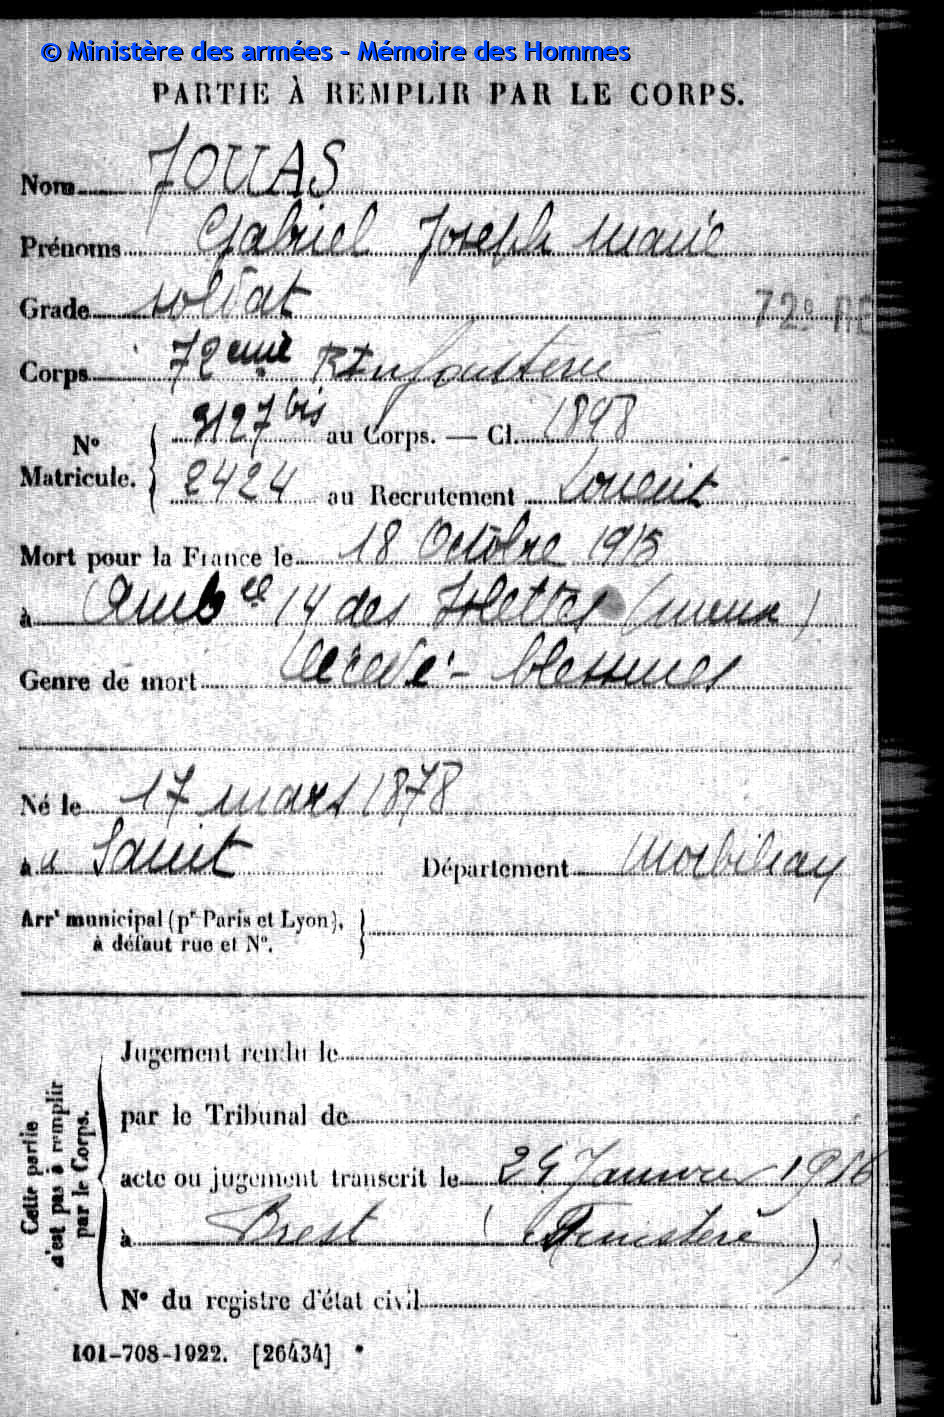 © Ministère des armées - Mémoire des Hommes
PARTIE À REMPLIR PAR LE CORPS.
Nom JOUAS
Prénoms Gabriel Joseph Marie
Grade soldat
72e RE
Corps 72eme R Infanterie
N° Matricule. 3127 bis au Corps. — Cl. 1898
2424 au Recrutement Lorient
Mort pour la France le 18 Octobre 1915
à Ambce 14 des Islettes (Meuse)
Genre de mort Décédé - blessures
Né le 17 mars 1878
à a Saint Département Morbihan
Arrt municipal (pr Paris et Lyon),
à défaut rue et N°.
Cette partie
n'est pas à remplir
par le Corps.
Jugement rendu le
par le Tribunal de
acte ou jugement transcrit le 24 Janvier 1916
à Brest (Finistère)
N° du registre d'état civil
101-708-1922. [26434]